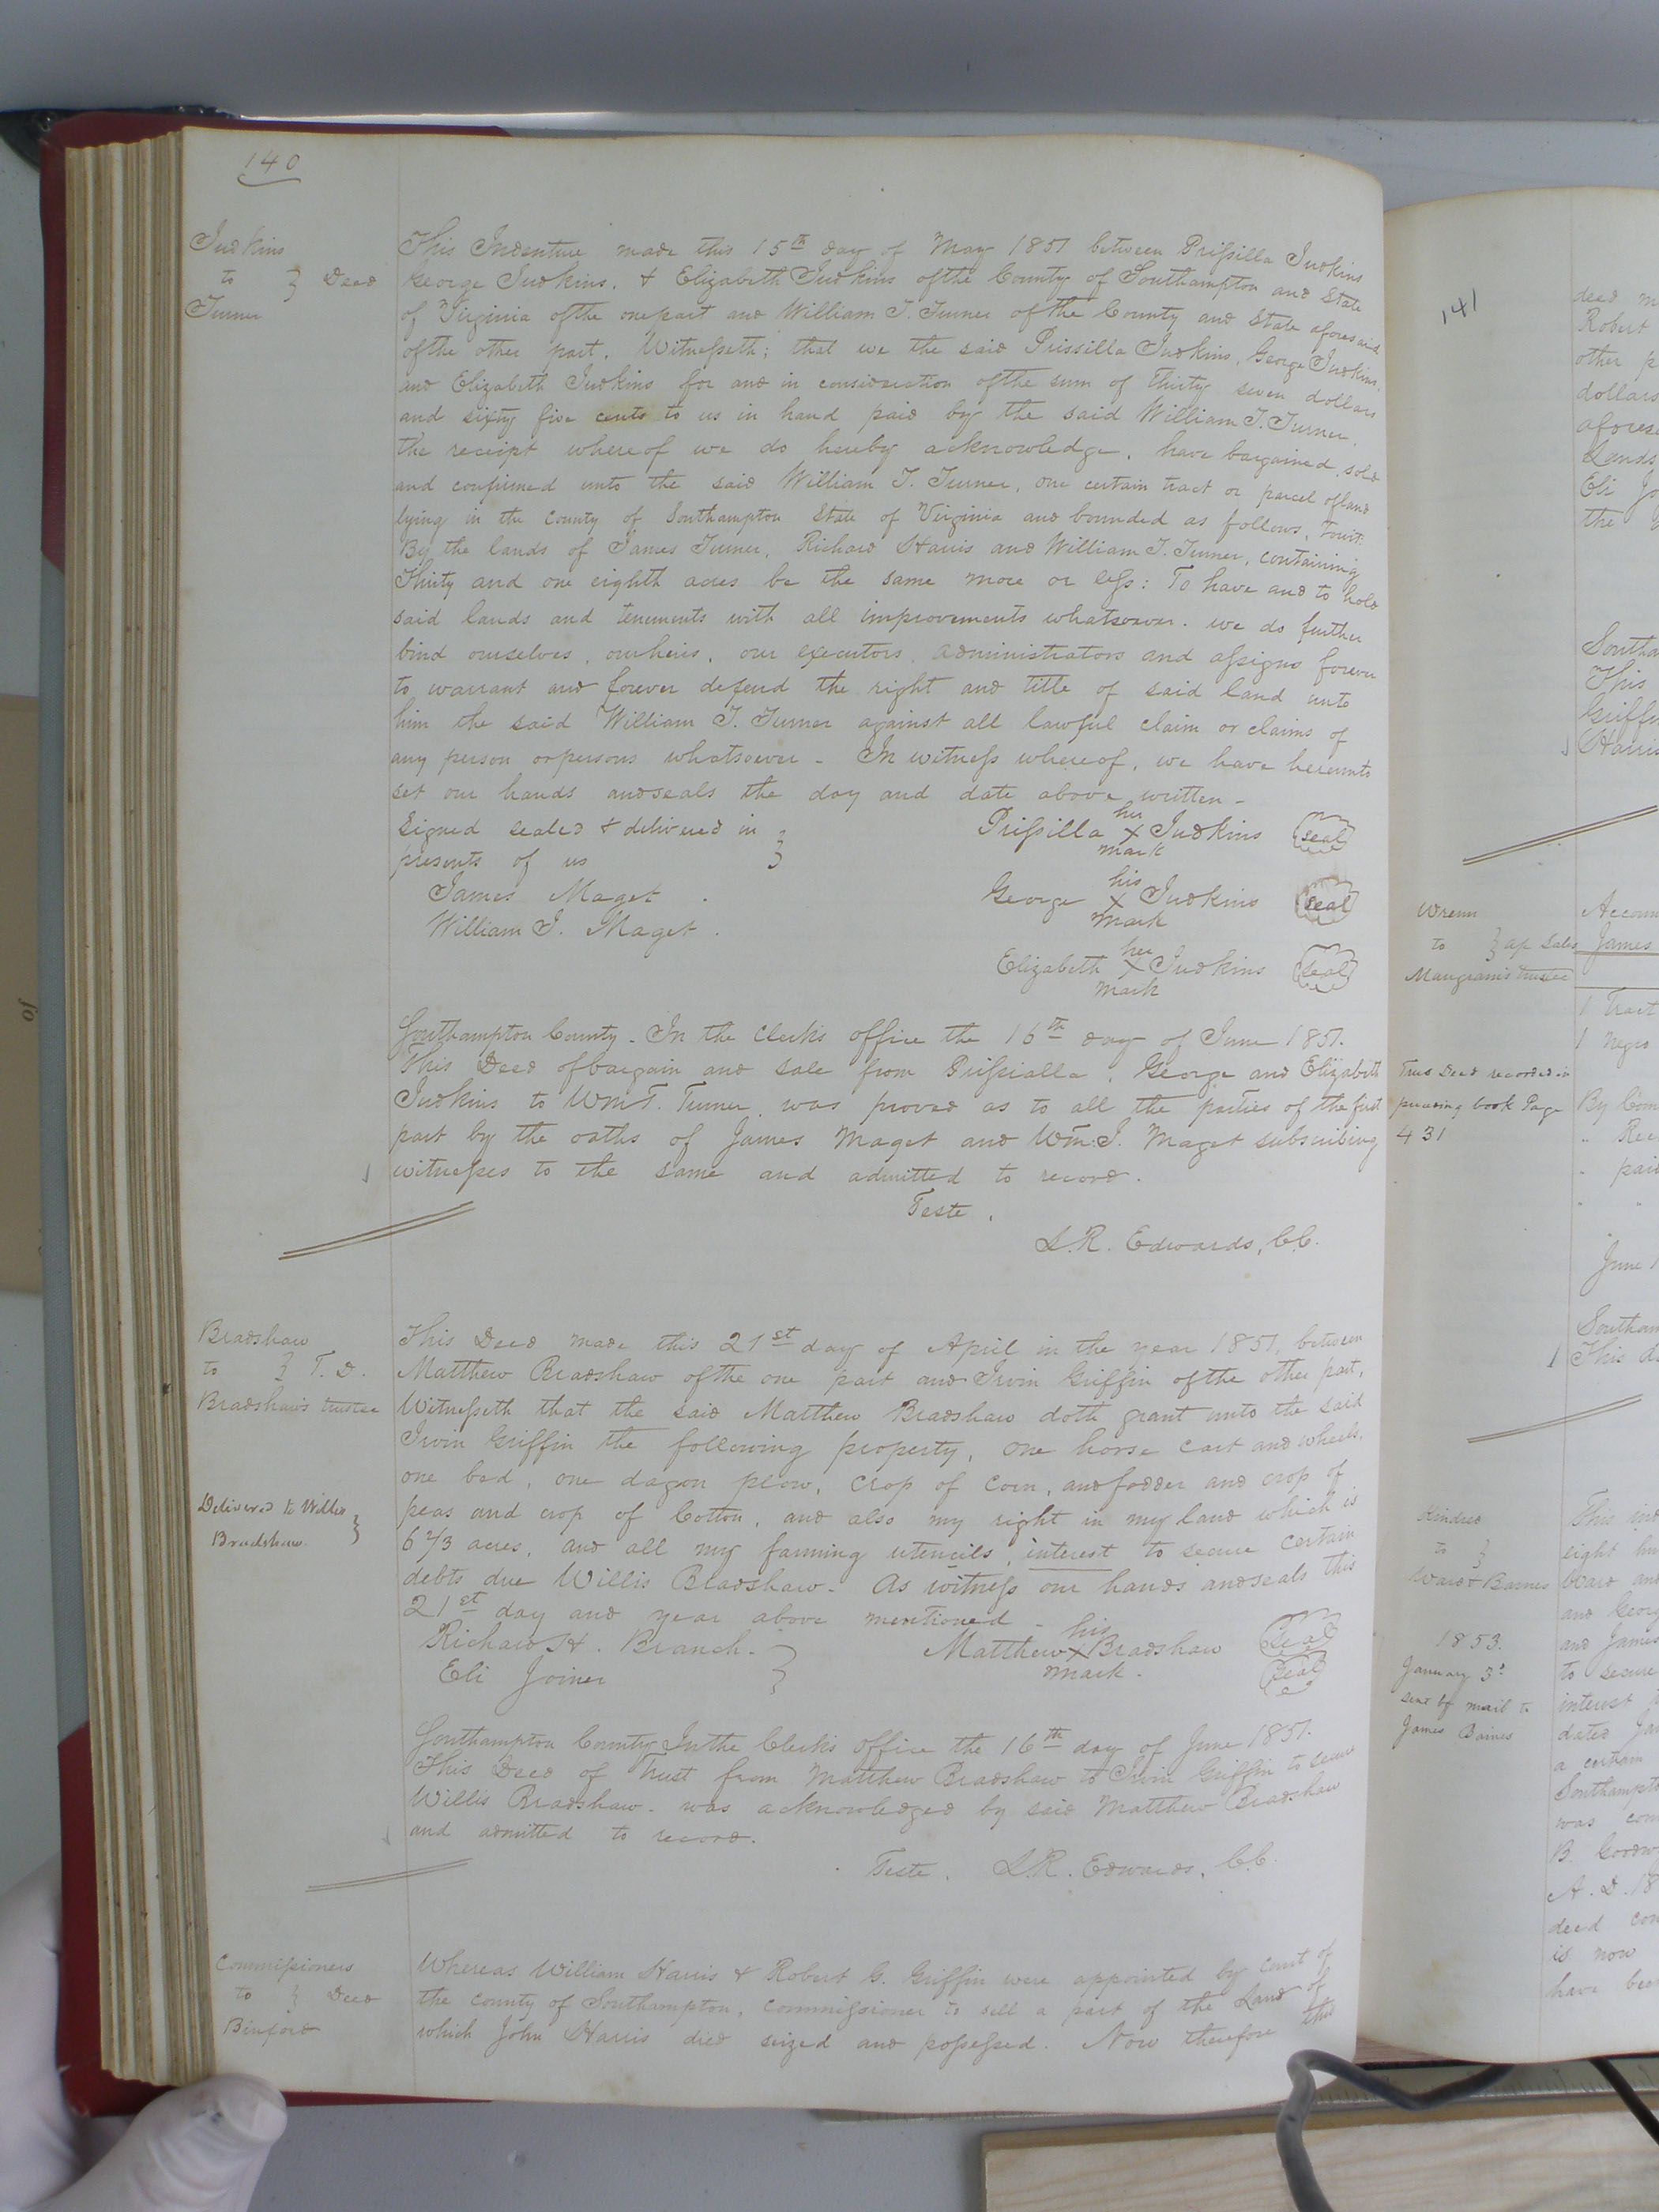 140
Judkins
to } Deed
Turner
This Indenture made this 15th day of May 1851 between Prissilla Judkins
George Judkins, & Elizabeth Judkins of the County of Southampton and State
of Virginia of the one part and William T. Turner of the County and State aforesaid
of the other part, Witnesseth; that we the said Prissilla Judkins, George Judkins,
and Elizabeth Judkins for and in consideration of the sum of Thirty seven dollars
and sixty five cents to us in hand paid by the said William T. Turner,
the receipt whereof we do hereby acknowledge, have bargained, sold
and confirmed unto the said William T. Turner, one certain tract or parcel of land
lying in the County of Southampton State of Virginia and bounded as follows, Towit:
By the lands of James Turner, Richard Harris and William T. Turner, containing
Thirty and one eighth acres be the same more or less: To have and to hold
said lands and tenements with all improvements whatsoever. we do further
bind ourselves, our heirs, our executors, administrators and assigns forever
to warrant and forever defend the right and title of said land unto
him the said William T. Turner against all lawful claim or claims of
any person or persons whatsoever - In witness whereof, we have hereunto
set our hands and seals the day and date above written -
Signed sealed & delivered in }
presents of us
James Maget .
William J. Maget .
her
Prissilla X Judkins seal
mark
his
George X Judkins seal
mark
her
Elizabeth X Judkins seal
mark
Southampton County - In the Clerks office the 16th day of June 1851.
This Deed of bargain and sale from Prissialla, George and Elizabeth
Judkins to Wm T. Turner, was proved as to all the parties of the first
part by the oaths of James Maget and Wm. J. Maget subscribing
witnesses to the same and admitted to record.
Teste,
L.R. Edwards, C.C.
Bradshaw
to } T. D.
Bradshaw's trustee
Delivered to Willis }
Bradshaw
This Deed made this 21st day of April in the year 1851, between
Matthew Bradshaw of the one part and Irvin Griffin of the other part,
Witnesseth that the said Matthew Bradshaw doth grant unto the said
Irvin Griffin the following property, one horse cart and wheels,
one bed, one dagon plow, crop of corn, and fodder and crop of
peas and crop of Cotton, and also my right in my land which is
6 2/3 acres, and all my farming utencils, interest to secure certain
debts due Willis Bradshaw - As witness our hands and seals this
21st day and year above mentioned -
Richard H. Branch. }
Eli Joiner
his
Matthew X Bradshaw Seal
mark. Seal
Southampton County, In the Clerks Office the 16th day of June 1851.
This Deed of Trust from Matthew Bradshaw to Irvin Griffin to secure
Willis Bradshaw - was acknowledged by said Matthew Bradshaw
and admitted to record.
Teste, L.R. Edwards, C.C.
Commissioners
to } Deed
Binford
Whereas William Harris & Robert G. Griffin were appointed by Court of
the County of Southampton, commissioner to sell a part of the Land of
which John Harris died seized and possessed. Now therefore this
141
deed
Robert
other
dollars
Lands
Eli
the
This
Wrenn
to } ap Sales
Mangram's trustee
James
1 Tract
1 Negro
Trust Deed recorded in
preceding book Page
431
paid
June
This
Kindred
to }
Ward & Barnes
1853.
January 3d
sent by mail to
James Barnes
This
eight
Ward and
and Georg
and James
to secure
interest
dated
a certain
was
B.
A. D. 18
deed
is now
have been